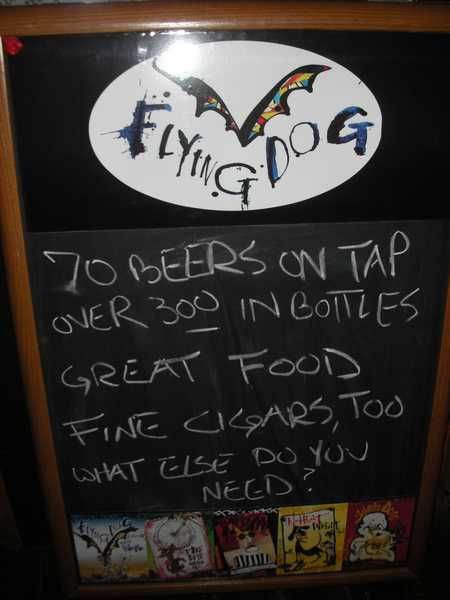 FLYING DOG
70 BEERS ON TAP
OVER 300 IN BOTTLES
GREAT FOOD
FINE CIGARS, TOO
WHAT ELSE DO YOU
NEED?
FLYING DOG